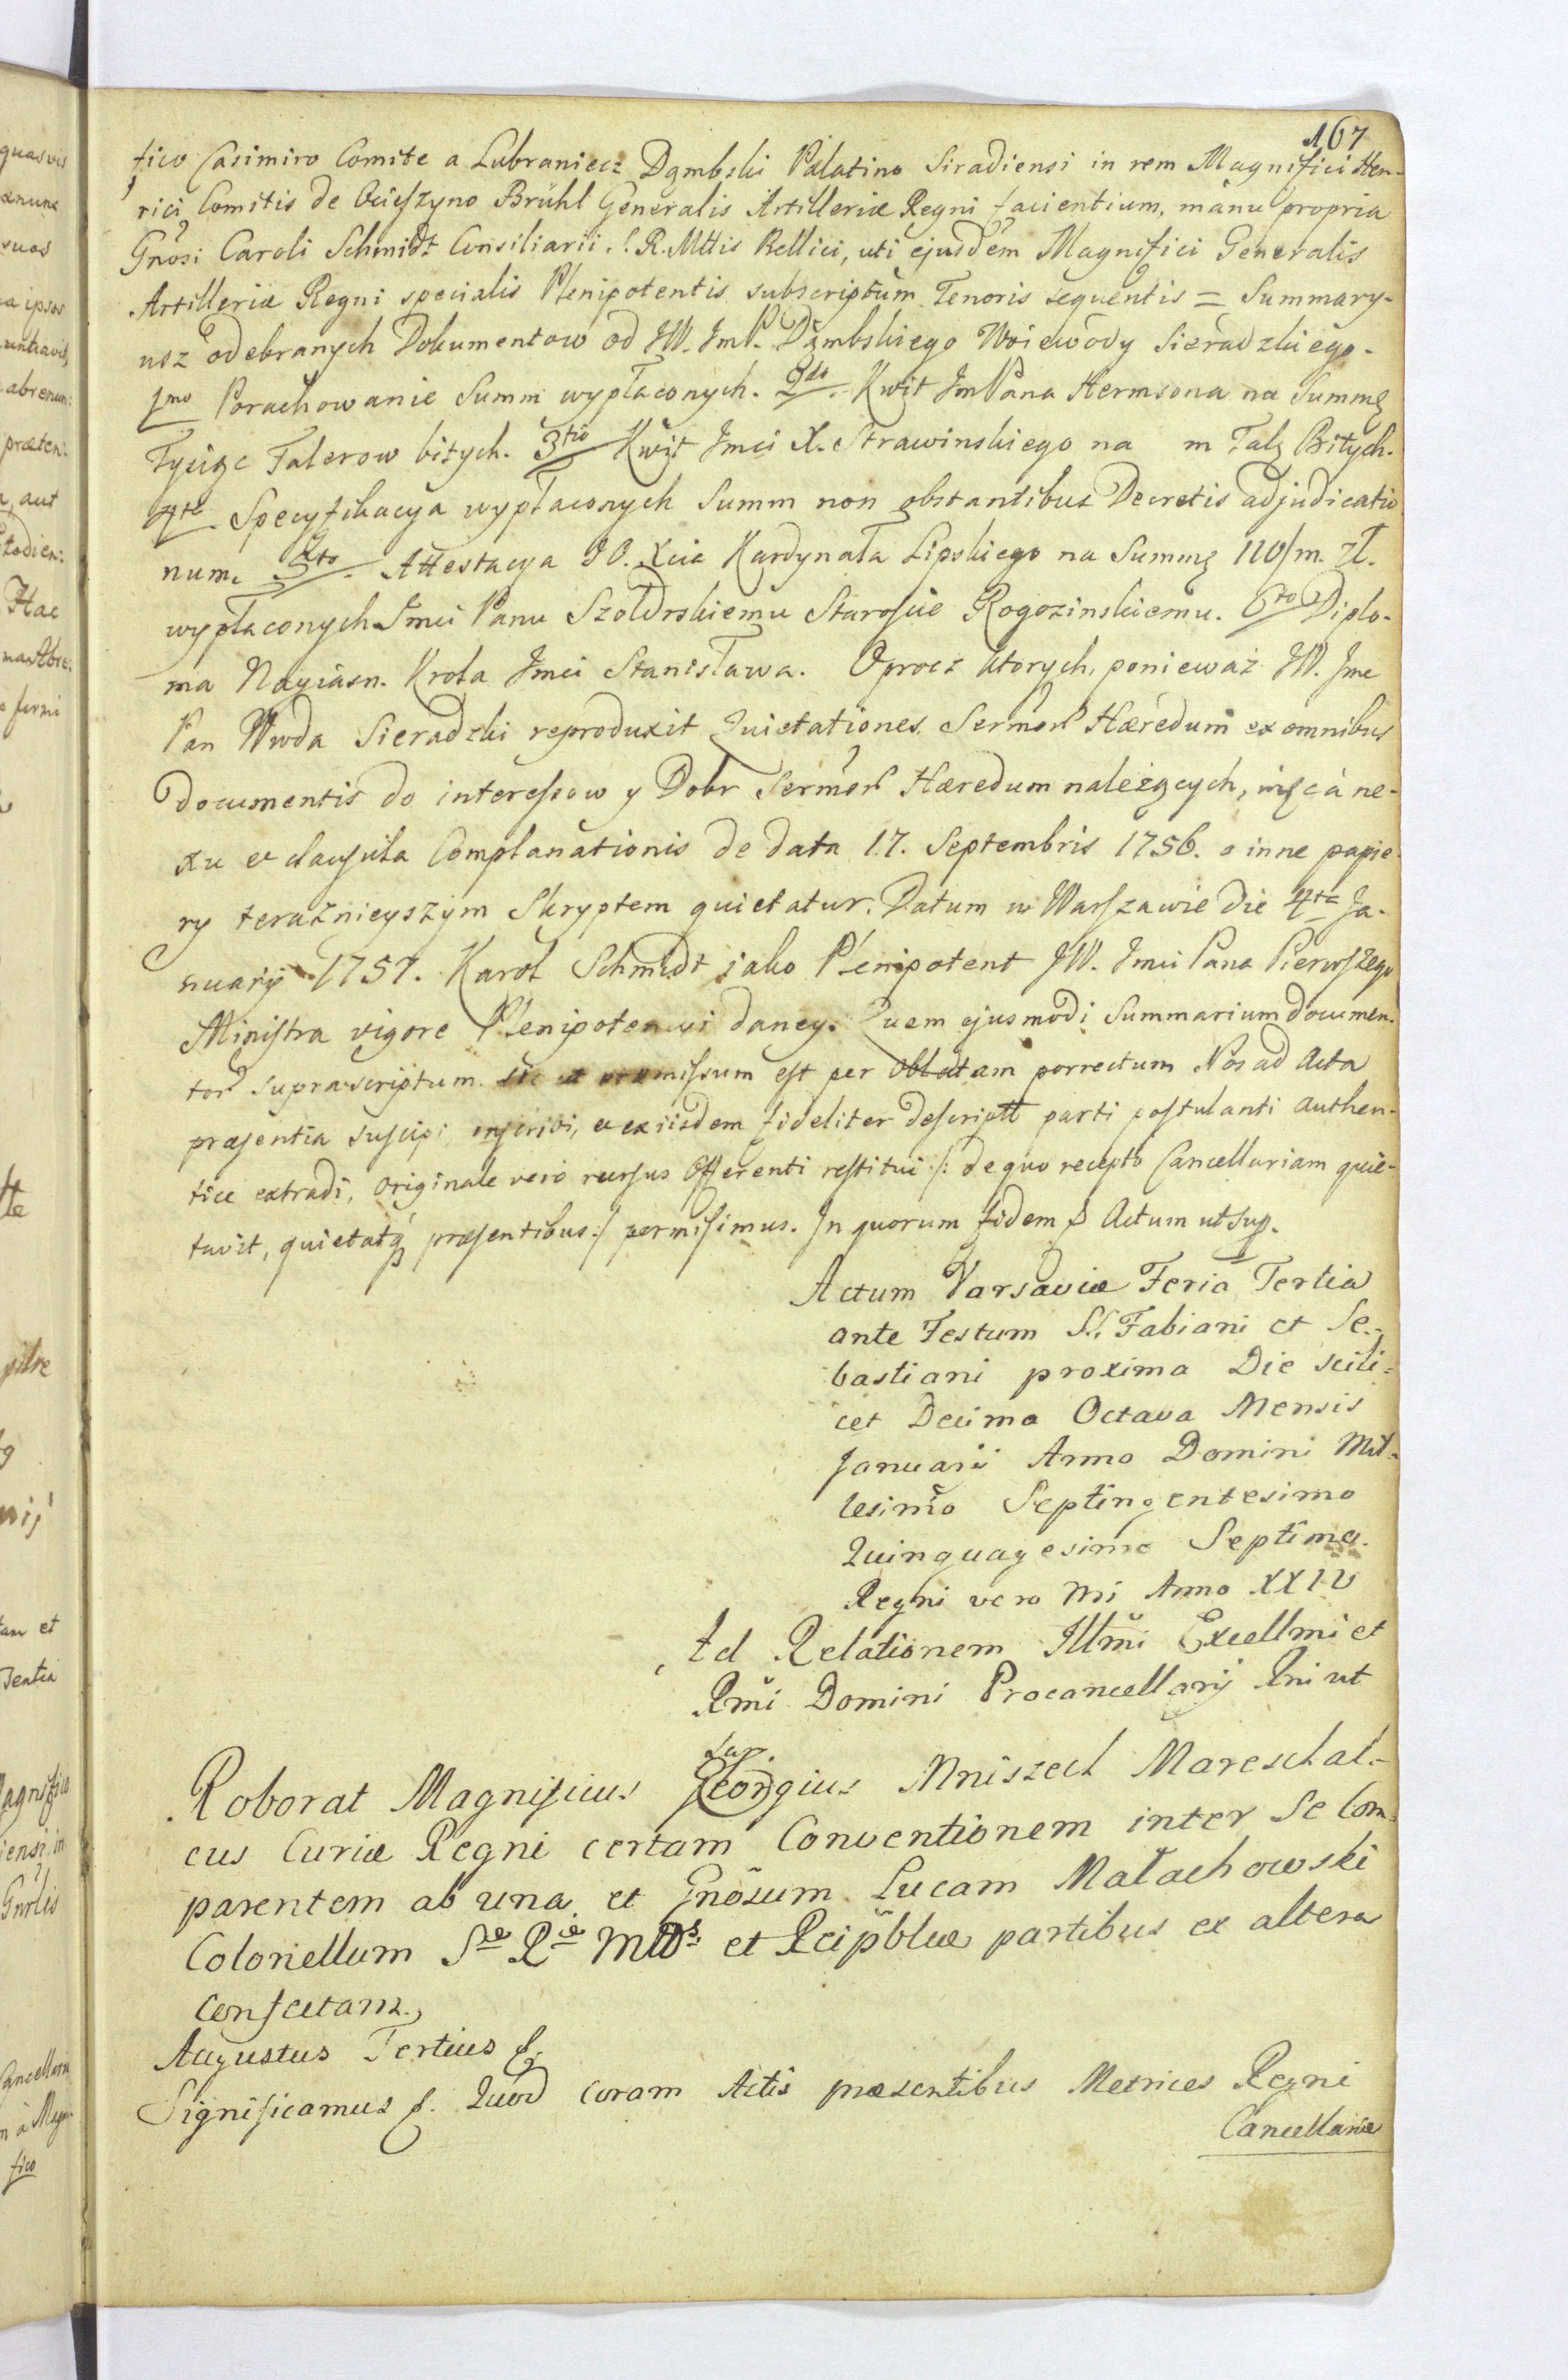 167
fico Casimiro Comite a Lubraniecz Dąmbski Palatino Siradiensi in rem Magnifici Hen-
rici Comitis de Ocieszyno Brühl Generalis Artilleriæ Regni facientium, manu propria
Gnosi Caroli Schmidt Consiliarii S. R. Mttis Bellici, uti ejusdem Magnifici Generalis
Artilleriæ Regni specialis Plenipotentis subscriptum Tenoris sequentis = Summary-
usz odebranych Dokumentow od JW. JmP. Dąmbskiego Woiewody Sieradzkiego.
1mo Porachowanie Summ wypłaconych. 2do. Kwit JmPana Hermsona na Summę
Tysiąc Talerow bitych. 3tio Kwit Jmci X. Strawinskiego na m Talę Bitych.
4to Specyfikacya wypłaconych Summ non obstantibus Decretis adjudicatio
num. 5to. Attestacya JO. Xcia Kardynała Lipskiego na Summę 110/m. zł.
wypłaconych Jmci Panu Szołdrskiemu Staroście Rogozinskiemu. 6to Diplo-
ma Nayiasn. Krola Jmci Stanisława. Oprocz ktorych, ponieważ JW. Jmc
Pan Wwda Sieradzki reproduxit Quietationes Sermor Hæredum ex omnibus
Documentis do interessow y Dobr Sermor Hæredum należących, więc à ne-
xu et clausula Complanationis de data 17. Septembris 1756. o inne papie-
ry teraznieyszym Skryptem quietatur. Datum w Warszawie die 4ta Ja-
nuarij 1757. Karol Schmidt jako Plenipotent JW. Jmci Pana Pierwszego
Ministra vigore Plenipotencyi daney. Quem ejusmodi Summarium documen-
tor suprascriptum sic ut præmissum est per Oblatam porrectum Nos ad Acta
præsentia suscipi inscribi, et ex iisdem fideliter descriptt parti postulanti authen-
tice extradi, originale vero rursus Offerenti restitui /: de quo recepto Cancellariam quie-
tavit, quietatq præsentibus :/ permisimus. In quorum fidem p Actum ut sup.
Actum Varsaviæ Feria Tertia
ante Festum S.S. Fabiani et Se-
bastiani proxima Die scili-
cet Decima Octava Mensis
Januarii Anno Domini Mil-
lesimo Septingentesimo
Quinquagesimo Septimo.
Regni vero Nri Anno XXIV
Ad Relationem Illmi Excellmi et
Rmi Domini Procancellarij Rni ut
sup.
Roborat Magnificus Georgius Mniszech Mareschal-
cus Curiæ Regni certam Conventionem inter Se Com-
parentem ab una et Gnosum Lucam Małachowski
Colonellum Sæ Ræ Mttis et Reipblcæ partibus ex altera
confectam.
Augustus Tertius p.
Significamus p. Quod coram Actis præsentibus Metrices Regni
Cancellariæ